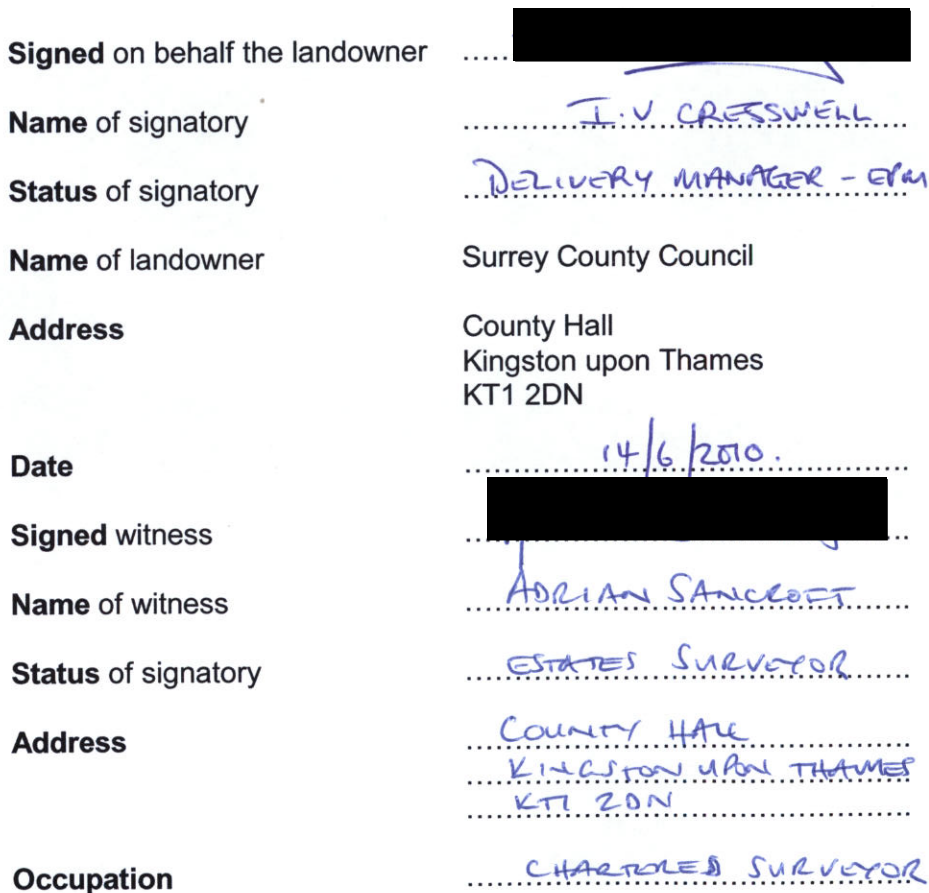 Signed on behalf the landowner
Name of signatory I.V CRESSWELL
Status of signatory DELIVERY MANAGER - EPM
Name of landowner Surrey County Council
Address County Hall
Kingston upon Thames
KT1 2DN
Date 14/6/2010.
Signed witness
Name of witness ADRIAN SANCROFT
Status of signatory ESTATES SURVEYOR
Address COUNTY HALL
KINGSTON UPON THAMES
KT1 2DN
Occupation CHARTERED SURVEYOR